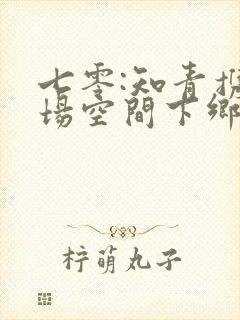 七零:知青
場空間下鄉
柠萌丸子